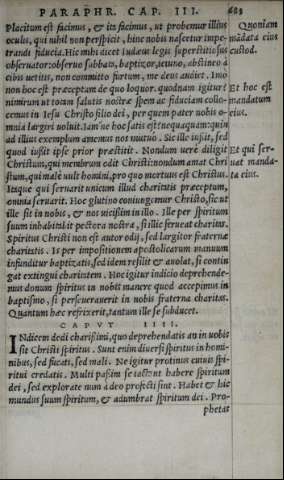 PARAPHR. CAP. III. 603
Placitum est facimus, & ita facimus, ut probemur illius
oculis, qui nihil non perspicit, hinc nobis nascetur impe-
tranda fiducia. Hic mihi dicet Iudæus legis superstitiosus
obseruator: obseruo sabbata, baptizor, ieiuno, abstineo à
cibis uetitis, non committo furtum, me deus audiet. Imò
non hoc est præceptum de quo loquor. quodnam igitur?
nimirum ut totam salutis nostræ spem ac fiduciam collo-
cemus in Iesu Christo filio dei, per quem pater nobis o-
mnia largiri uoluit. Iam ne hoc satis est? nequaquam: quin
ad illius exemplum amemus nos mutuò. Sic ille iussit, sed
quod iussit ipse prior præstitit. Nondum uerè diligit
Christum, qui membrum odit Christi: nondum amat Chri
stum, qui malè uult homini, pro quo mortuus est Christus.
Itaque qui seruarit unicum illud charitatis præceptum,
omnia seruarit. Hoc glutino coniungimur Christo, sic ut
ille sit in nobis, & nos uicissim in illo. Ille per spiritum
suum inhabitabit pectora nostra, si illic ferueat charitas.
Spiritus Christi non est autor odij, sed largitor fraternæ
charitatis. Is per impositionem apostolicarum manuum
infunditur baptizatis, sed idem resilit & auolat, si contin
gat extingui charitatem. Hoc igitur indicio deprehende-
mus donum spiritus in nobis manere quod accepimus in
baptismo, si perseuerauerit in nobis fraterna charitas.
Quantum hæc refrixerit, tantum ille se subducet.
Quoniam
mādata eius
custod.
Et hoc est
mandatum
eius.
Et qui ser-
uat manda-
ta eius.
CAPVT IIII.
INdicem dedi charissimi, quo deprehendatis an in uobis
sit Christi spiritus. Sunt enim diuersi spiritus in homi
nibus, sed fucati, sed mali. Ne igitur protinus cuiuis spi-
ritui credatis. Multi passim se iactant habere spiritum
dei, sed explorate num à deo profecti sint. Habet & hic
mundus suum spiritum, & adumbrat spiritum dei. Pro-
phetas